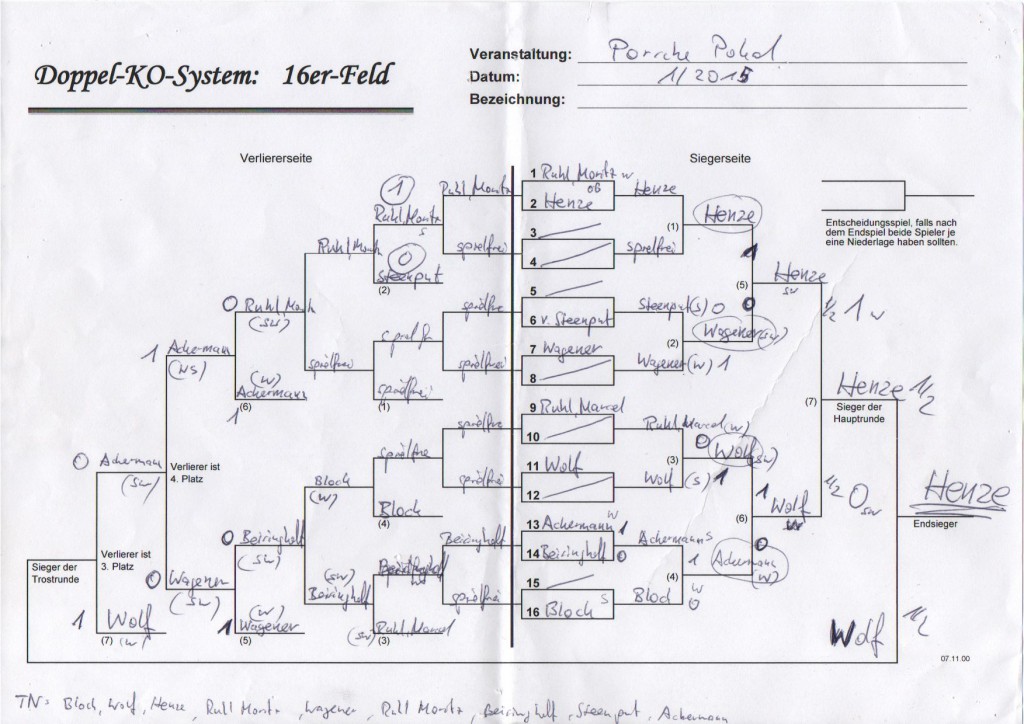 Doppel-KO-System: 16er-Feld
Veranstaltung: Porsche Pokal
Datum: 1/2015
Bezeichnung:
Verliererseite
Siegerseite
Entscheidungsspiel, falls nach
dem Endspiel beide Spieler je
eine Niederlage haben sollten.
1 Ruhl, Moritz w
2 Henze
3
4
5
6 v. Steenput
7 Wagener
8
9 Ruhl, Marcel
10
11 Wolf
12
13 Ackermann w 1
14 Beiringhoff 0
15
16 Bloch s
Henze
spielfrei
Steenput (s) 0
Wagener (w) 1
Ruhl, Marcel (w) 0
Wolf (s) 1
Ackermann s 1
Bloch w 0
(1)
Henze 1
(2)
Wagener (sw) 0
(3)
Wolf (sw) 1
(4)
Ackermann (w) 0
(5)
Henze sw 1/2 1 w
(6)
Wolf w 1/2 0 sw
(7)
Henze 1/2
Sieger der
Hauptrunde
Henze
Endsieger
Wolf 1/2
07.11.00
Ruhl, Moritz
spielfrei
spielfrei
spielfrei
spielfrei
spielfrei
Beiringhoff
spielfrei
1
Ruhl, Moritz s
0
Steenput
(2)
spielfrei
spielfrei
(1)
spielfrei
Bloch
(4)
Beiringhoff
Ruhl, Marcel (sw)
(3)
Ruhl, Moritz
spielfrei
Bloch (w)
(sw) Beiringhoff
0 Ruhl, Moritz (sw)
(w) Ackermann
1 (6)
0 Beiringhoff (sw)
(w)
1 Wagener
(5)
1 Ackermann (ws)
0 Wagener (sw)
Verlierer ist
4. Platz
0 Ackermann (sw)
1 Wolf
(7) (w)
Verlierer ist
3. Platz
Sieger der
Trostrunde
TN: Bloch, Wolf, Henze, Ruhl Moritz, Wagener, Ruhl Moritz, Beiringhoff, Steenput, Ackermann